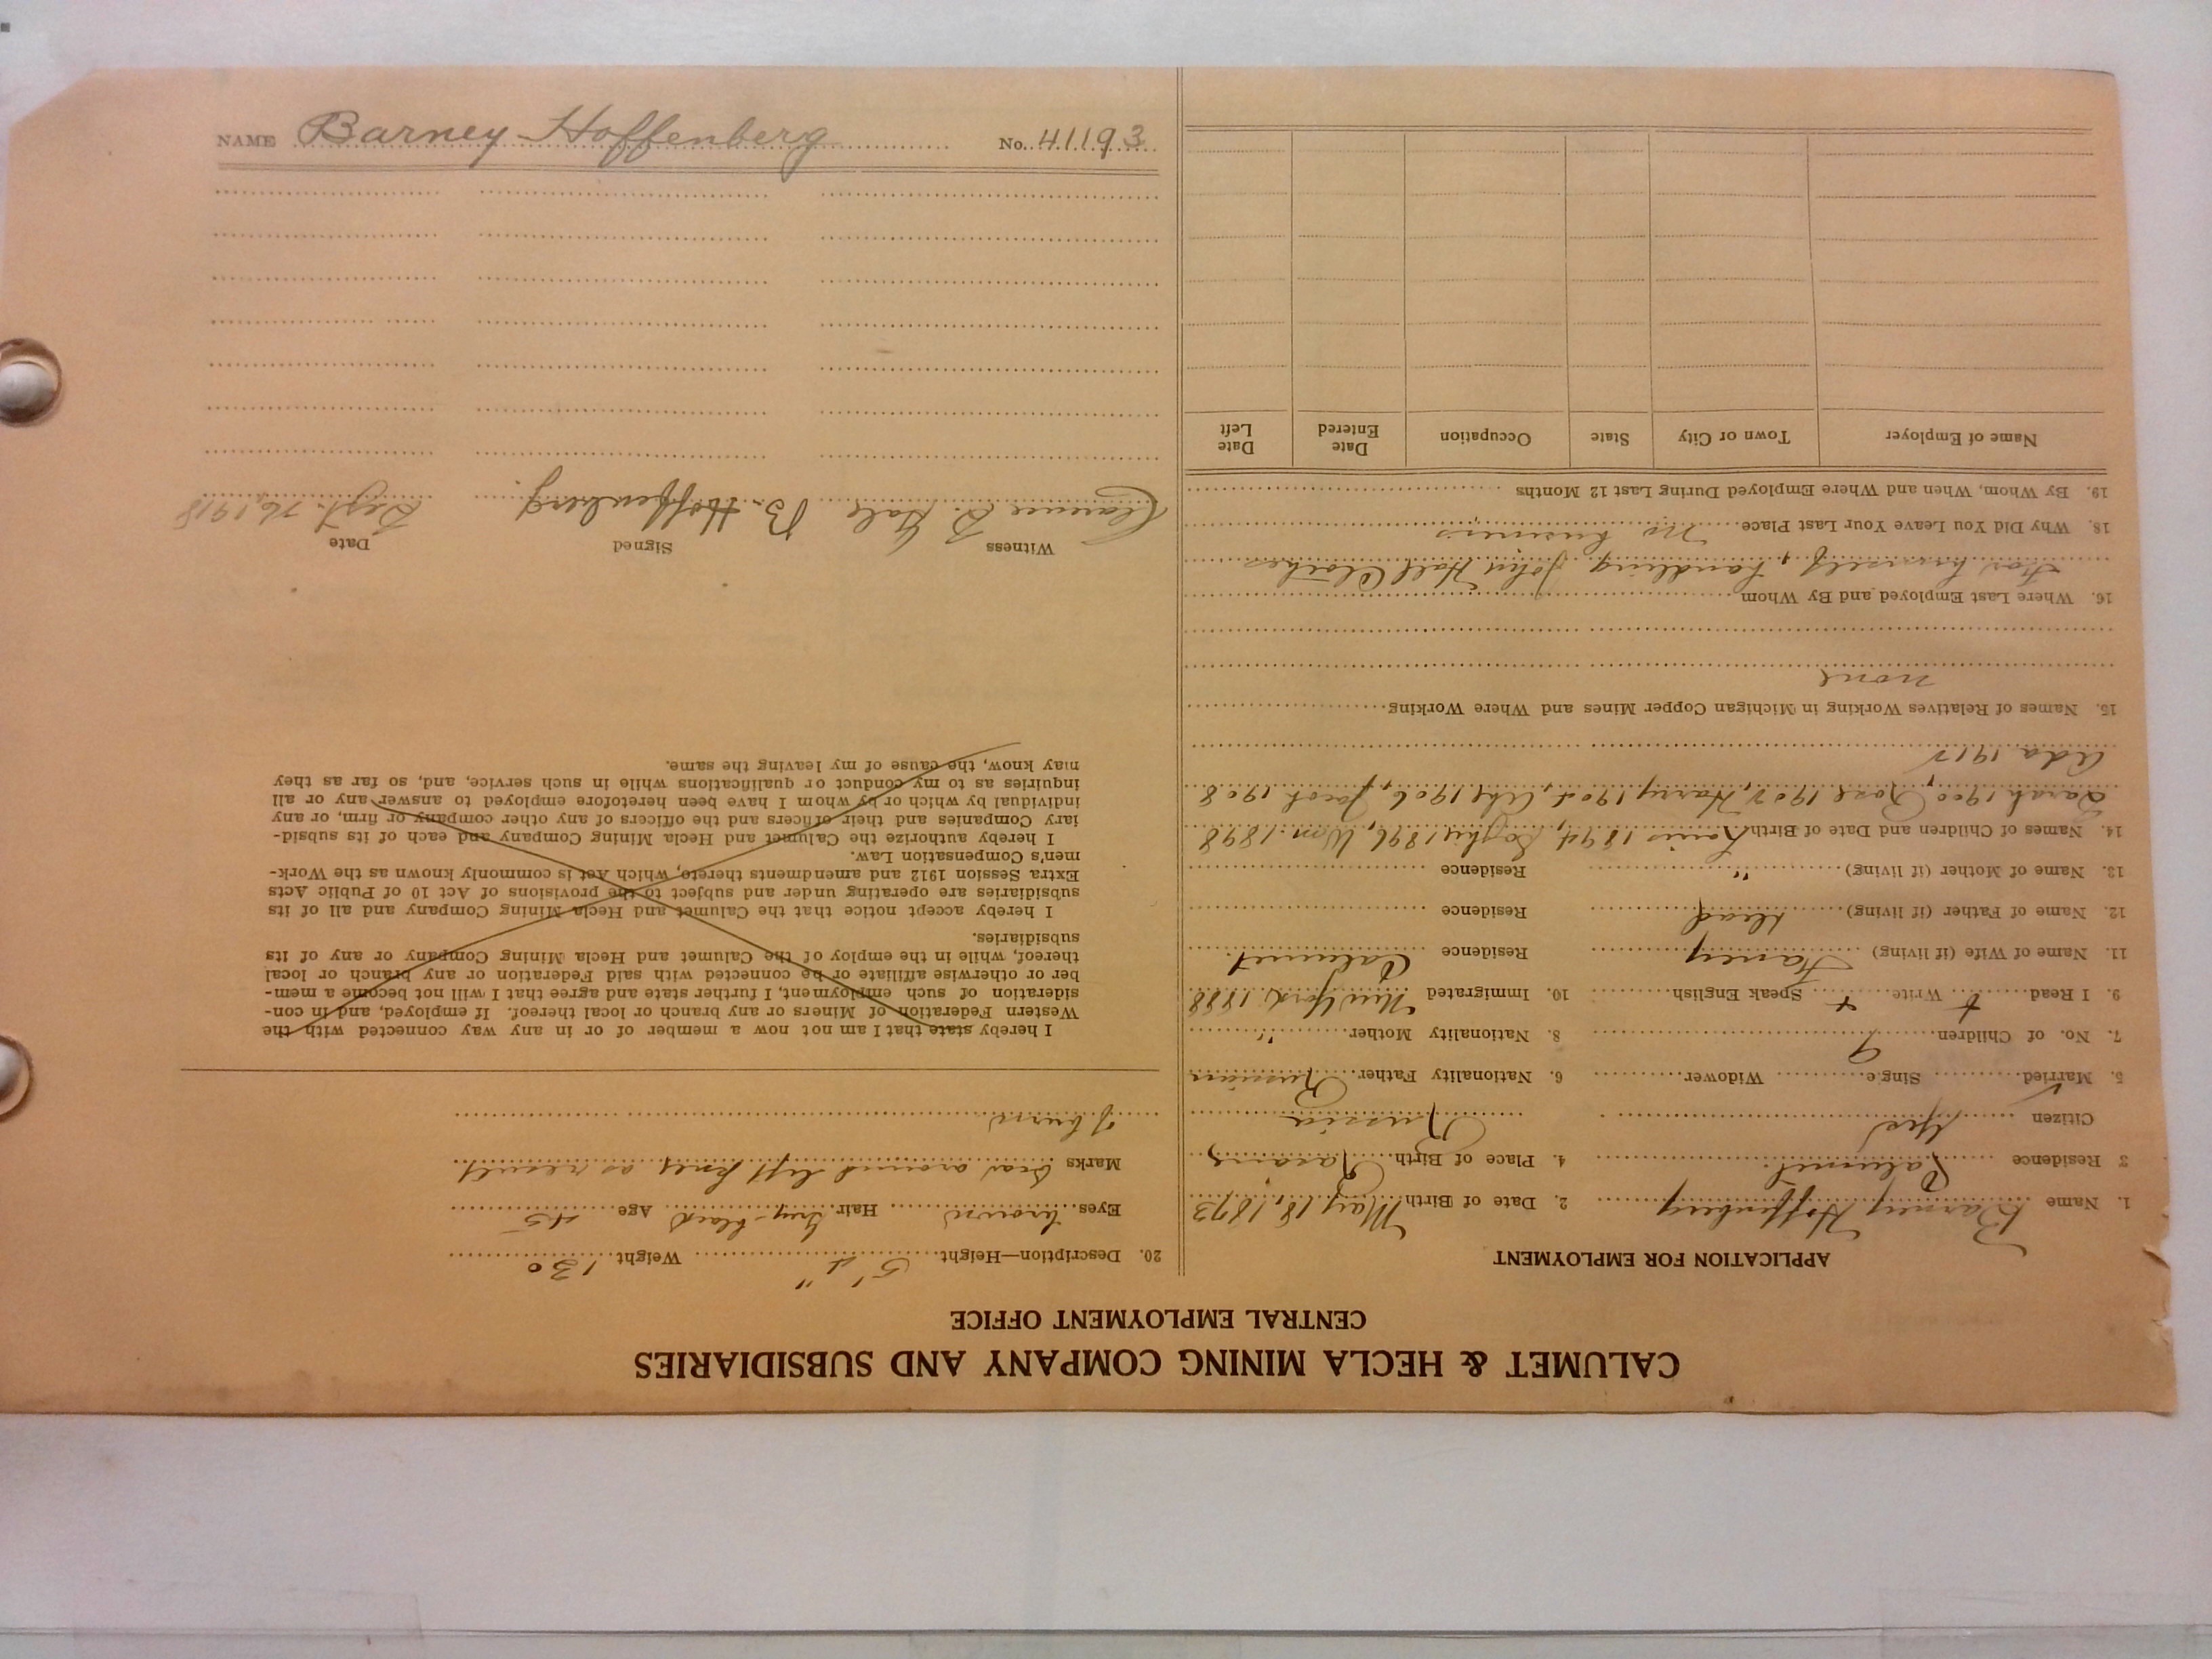 CALUMET & HECLA MINING COMPANY AND SUBSIDIARIES
CENTRAL EMPLOYMENT OFFICE
APPLICATION FOR EMPLOYMENT
1. Name Barney Hoffenberg 2. Date of Birth May 18, 1873
3 Residence Calumet. 4. Place of Birth
Citizen Yes Russia
5. Married Single Widower 6. Nationality Father Russian
7. No. of Children 9 8. Nationality Mother "
9. I Read Write Speak English 10. Immigrated New York 1888
11. Name of Wife (if living) Fancy Residence Calumet.
12. Name of Father (if living) dead Residence
13. Name of Mother (if living) " Residence
14. Names of Children and Date of Birth Louis 1894, Sophie 1896, Wm. 1898
Sarah 1900 Rose 1902, Harry 1904, Abe 1906, Jacob 1908
Ada 1912
15. Names of Relatives Working in Michigan Copper Mines and Where Working
none
16. Where Last Employed and By Whom
For himself, handling John Hall Clothes
18. Why Did You Leave Your Last Place no business
19. By Whom, When and Where Employed During Last 12 Months
Name of Employer Town or City State Occupation Date Entered Date Left
20. Description—Height 5' 4" Weight 130
Eyes brown Hair grey-black Age 45
Marks Scar around left knee as result
of burn
I hereby state that I am not now a member of or in any way connected with the
Western Federation of Miners or any branch or local thereof. If employed, and in con-
sideration of such employment, I further state and agree that I will not become a mem-
ber or otherwise affiliate or be connected with said Federation or any branch or local
thereof, while in the employ of the Calumet and Hecla Mining Company or any of its
subsidiaries.
I hereby accept notice that the Calumet and Hecla Mining Company and all of its
subsidiaries are operating under and subject to the provisions of Act 10 of Public Acts
Extra Session 1912 and amendments thereto, which Act is commonly known as the Work-
men's Compensation Law.
I hereby authorize the Calumet and Hecla Mining Company and each of its subsid-
iary Companies and their officers and the officers of any other company or firm, or any
individual by which or by whom I have been heretofore employed to answer any or all
inquiries as to my conduct or qualifications while in such service, and, so far as they
may know, the cause of my leaving the same.
Witness Signed Date
Clarence D. Hale B. Hoffenberg. Sept. 16, 1918
NAME Barney Hoffenberg No. 41193